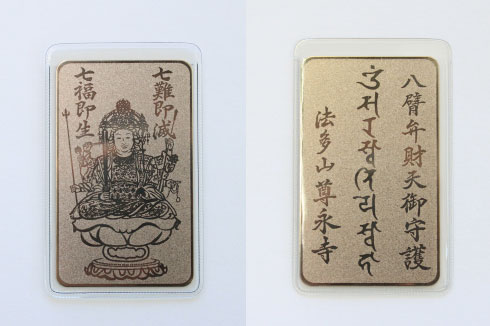 七難即滅
七福即生
八臂弁財天御守護
法多山尊永寺